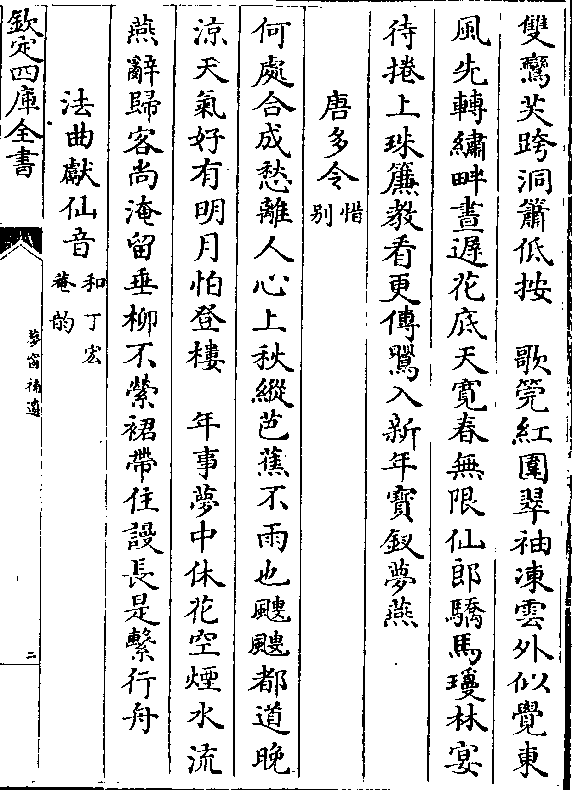 雙鸞笑跨洞簫低按　歌筦紅圍翠袖凍雲外似覺東
風先轉繡畔晝遲花底天寛春無限仙郎驕馬瓊林宴
待捲上珠簾教看更傳鶯入新年寳釵夢燕
唐多令惜别
何處合成愁離人心上秋縱芭蕉不雨也颼颼都道晚
涼天氣好有明月怕登樓　年事夢中休花空煙水流
燕辭歸客尚淹留垂柳不縈裙帶住謾長是繫行舟
法曲獻仙音和丁宏菴韵
欽定四庫全書
夢窗補遺
二